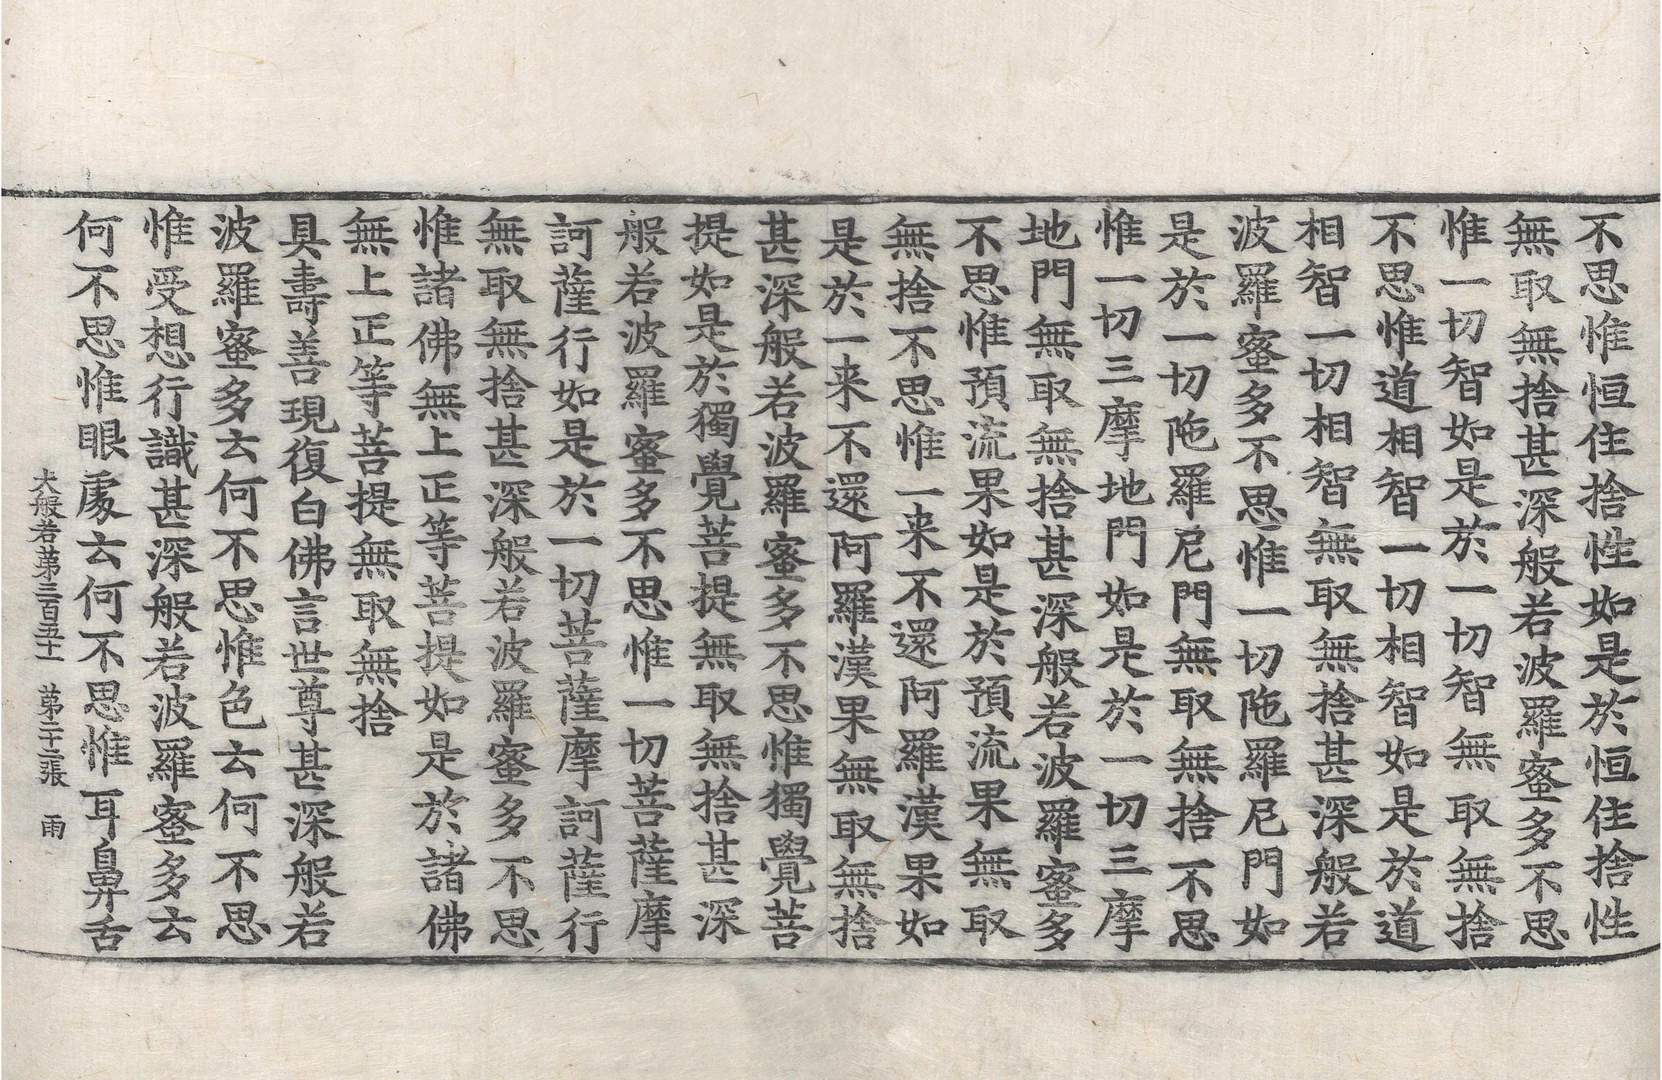 不思惟恒住捨性如是於恒住捨性
無取無捨甚深般若波羅蜜多不思
惟一切智如是於一切智無取無捨
不思惟道相智一切相智如是於道
相智一切相智無取無捨甚深般若
波羅蜜多不思惟一切陁羅尼門如
是於一切陁羅尼門無取無捨不思
惟一切三摩地門如是於一切三摩
地門無取無捨甚深般若波羅蜜多
不思惟預流果如是於預流果無取
無捨不思惟一来不還阿羅漢果如
是於一来不還阿羅漢果無取無捨
甚深般若波羅蜜多不思惟獨覺菩
提如是於獨覺菩提無取無捨甚深
般若波羅蜜多不思惟一切菩薩摩
訶薩行如是於一切菩薩摩訶薩行
無取無捨甚深般若波羅蜜多不思
惟諸佛無上正等菩提如是於諸佛
無上正等菩提無取無捨
具壽善現復白佛言世尊甚深般若
波羅蜜多云何不思惟色云何不思
惟受想行識甚深般若波羅蜜多云
何不思惟眼處云何不思惟耳鼻舌
大般若第三百五十一 第二十二張 雨